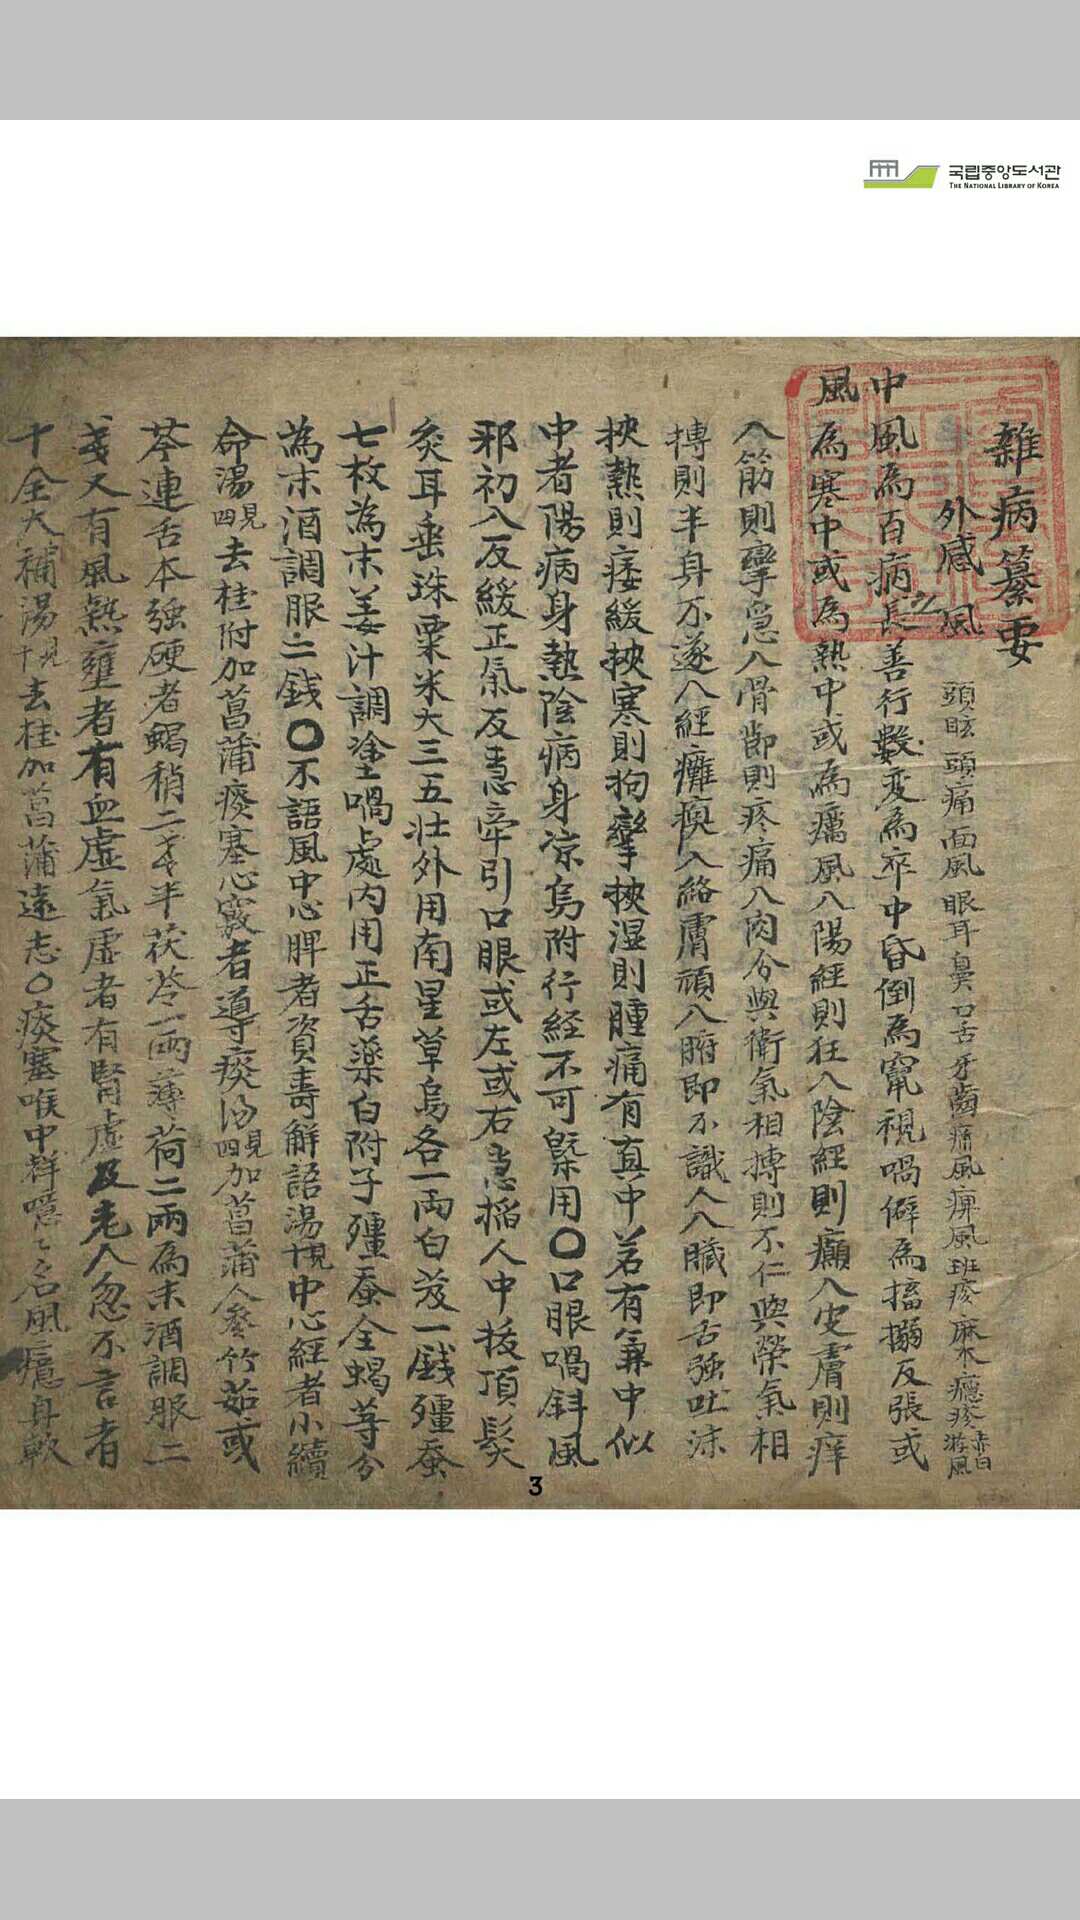 국립중앙도서관
THE NATIONAL LIBRARY OF KOREA
雜病纂要
外感 風 頭眩頭痛面風眼耳鼻口舌牙齒痛風痺風班疹麻木癮疹赤白游風
中風為百病之長善行數変為卒中昏倒為竄視喎僻為搐搦反張或
風 為寒中或為熱中或為癘風入陽經則狂入陰經則癲入皮膚則痒
入筋則攣急入骨節則疼痛入肉分與衛氣相搏則不仁與榮氣相
搏則半身不遂入經癱瘓入絡膚頑入腑即不識人入臟即舌強吐沫
挾熱則痿緩挾寒則拘攣挾湿則腫痛有真中者有兼中似
中者陽病身熱陰病身凉烏附行経不可槩用〇口眼喎斜風
邪初入反緩正氣反急牽引口眼或左或右急搯人中拔頂髮
灸耳垂珠粟米大三五壯外用南星草烏各一両白芨一戔殭蚕
七枚為末姜汁調塗喎處內用正舌藥白附子殭蚕全蝎等分
為末酒調服二錢〇不語風中心脾者資壽解語湯見十中心經者小續
命湯見四去桂附加菖蒲痰塞心竅者導痰湯見四加菖蒲人參竹茹或
芩連舌本強硬者蝎梢二戔半茯苓一両薄荷二兩為末酒調服二
戔又有風熱壅者有血虛氣虛者有腎虛及老人忽不言者
十全大補湯見十去桂加菖蒲遠志〇痰塞喉中群噫々名風癔身軟
3